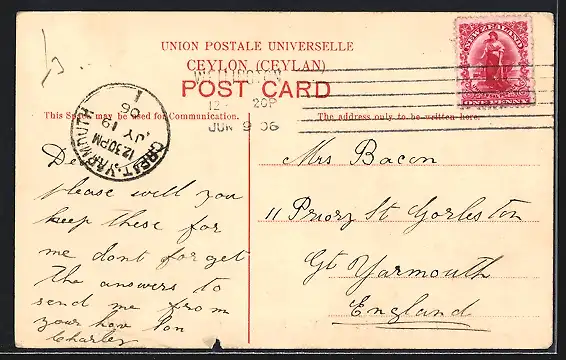 UNION POSTALE UNIVERSELLE
CEYLON (CEYLAN)
POST CARD
This Space may be used for Communication.
The address only to be written here.
NEW ZEALAND
ONE PENNY
WELLINGTON
12 - 2 0P
JUN 9 06
GREAT-YARMOUTH
12.30PM
JY 19
06
1
De
please will you
keep these for
me dont forget
the answers to
send me from
your
Charles
Mrs Bacon
11 Priory St Gorleston
Gt Yarmouth
England